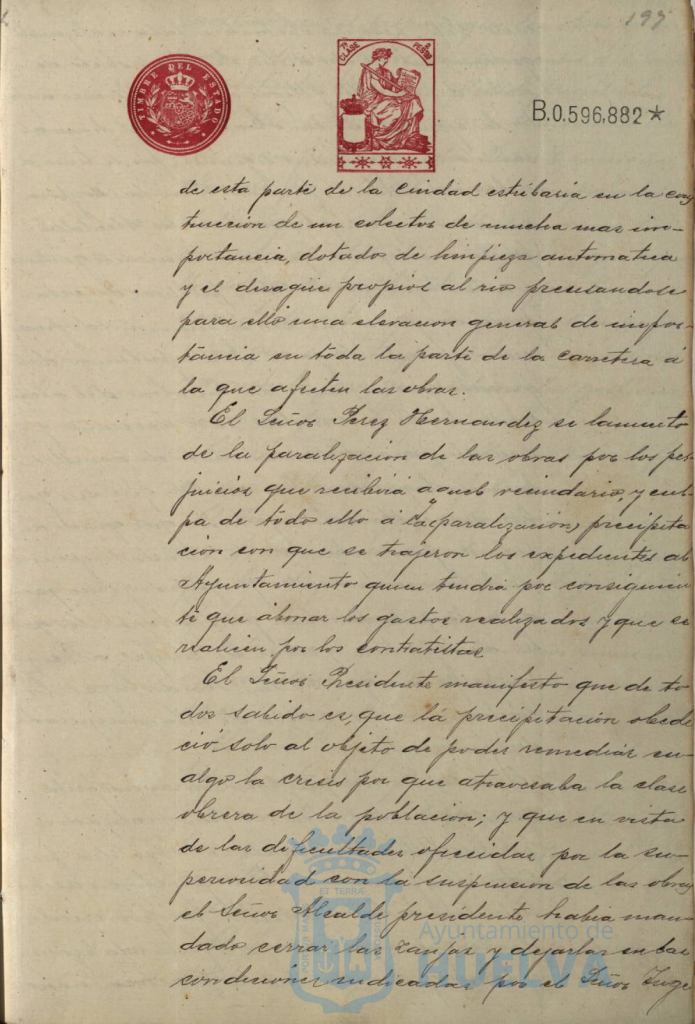 197
TIMBRE DEL ESTADO
7ª CLASE
B.0.596,882*
de esta parte de la Ciudad estribaria en la cons
truccion de un colector de mucha mas im-
portancia, dotado de limpieza automatica
y el desagüe propios al rio precisandose
para ello una elevacion general de impor-
tancia en toda la parte de la carretera á
la que afecten las obras.
El Señor Perez Hernandez se lamento
de la paralizacion de las obras por los per
juicios que recibirá aquel vecindario, y cul
pa de todo ello á la (paralización) precipita
ción con que se trajeron los expedientes al
Ayuntamiento quien tendrá por consiguien
te que abonar los gastos realizados y que se
realicen por los contratistas
El Señor Presidente manifesto que de to
dos sabido es, que la precipitación obede
ció solo al objeto de poder remediar en
algo la crisis por que atravesaba la clase
obrera de la poblacion; y que en vista
de las dificultades ofrecidas por la su-
perioridad con la suspension de las obras
el Señor Alcalde presidente habia man-
dado cerrar las zanjas y dejarlas en las
condiciones indicadas por el Señor Inge
Ayuntamiento de
HUELVA